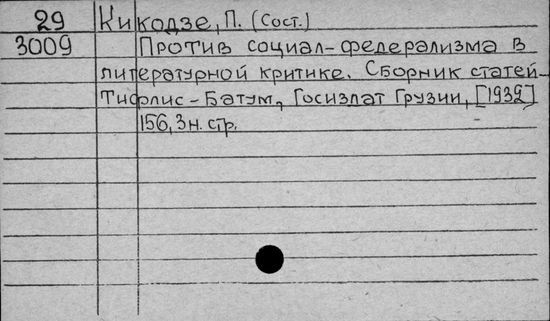 29 Кикодзе, П. (Сост.)
3009 Против социал-федерализма в
литературной критике. Сборник статей-
Тифлис-Батум, Госиздат Грузии, [1932]
156, 3 н. стр.